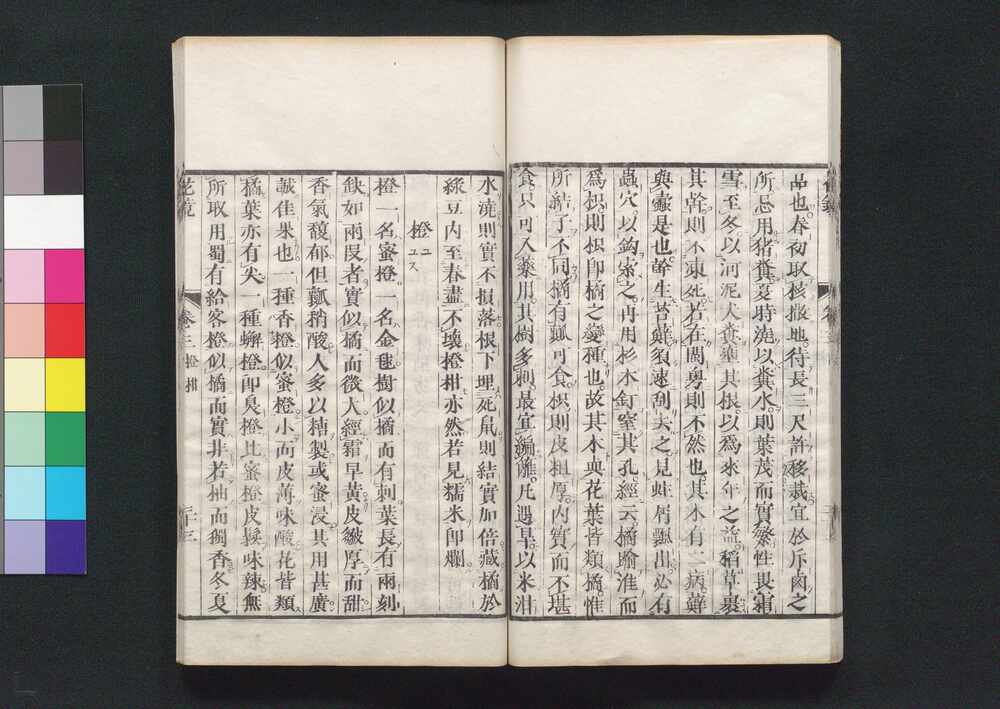 品也春初取核撒地待長三尺許移栽宜於斥鹵之
所忌用猪糞夏時澆以糞水則葉茂而實繁性畏霜
雪至冬以河泥人糞壅其根以爲來年之益稻草裹
其幹則不凍死若在閩粵則不然也其木有二病蘚
與蠹是也幹生苔蘚須速刮去之見蛀屑飄出必有
蟲穴以鈎索之再用杉木釘窒其孔經云橘踰淮而
爲枳則枳卽橘之變種也故其木與花葉皆類橘惟
所結子不同橘有瓤可食枳則皮粗厚內實而不堪
食只可入藥用其樹多刺最宜編籬凡遇旱以米泔
水澆則實不損落根下埋死鼠則結實加倍藏橘於
綠豆內至春盡不壞橙柑亦然若見糯米卽爛
橙 ユ ユス
橙一名蜜橙一名金毬樹似橘而有刺葉長有兩刻
缺如兩段者實似橘而微大經霜早黃皮皺厚而甜
香氣馥郁但瓤稍酸人多以糖製或蜜浸其用甚廣
誠佳果也一種香橙似蜜橙小而皮薄味酸花皆類
橘葉亦有尖一種蠏橙卽臭橙比蜜橙皮鬆味辣無
所取用蜀有給客橙似橘而實非若柚而獨香冬夏
花鏡 卷三 橙柑 二十三